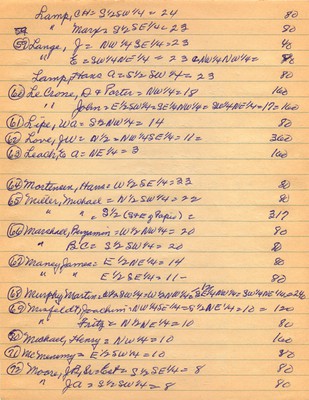 Lamp, CH = S½SW¼ = 24 80
" Mary = S½SE¼ = 23 80
59 Lange, J = NW¼SE¼ = 23 40
" E = SW¼NE¼ = 23 NW¼NW¼ = 80
Lamp, Hans A = S½SW¼ = 23 80
60 Le Crone, D & Porter = NW¼ = 18 160
" John = E½SW¼ = SE¼NW¼ = SW¼NE¼ = 17 = 160
61 Lipe, WA = S½NW¼ = 14 80
62 Love, JW = N½ = NW¼SE¼ = 11 = 360
63 Leach, A = NE¼ = 3 160
64 Mortensen, Hans = W½SE¼ = 33 80
65 Miller, Michael = N½SW¼ = 22 80
" " = S½ (St & G Papio) = 317
66 Marchael, Benjamin = W½NW¼ = 20 80
" BA = S½SW¼ = 20 80
67 Maney, James = E½NE¼ = 14 80
" E½SE¼ = 11 - 80
68 Murphy, Martin = W½NW¼ = SE¼NW¼ = SW¼NE¼ = 26
69 Musfeldt, Joachim = NW¼SE¼ = S½NE¼ = 10 = 120
" Fritz = N½NE¼ = 10 80
70 Michael, Henry = NW¼ = 10 160
71 McMenemy = E½SW¼ = 10 80
72 Moore, JB, = S½SE¼ = 8 80
" JA = S½SW¼ = 8 80